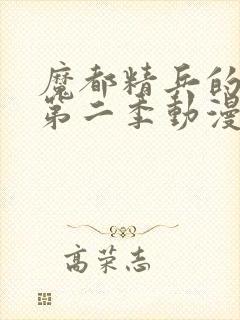 魔都精兵的
第二季動漫
高荣志